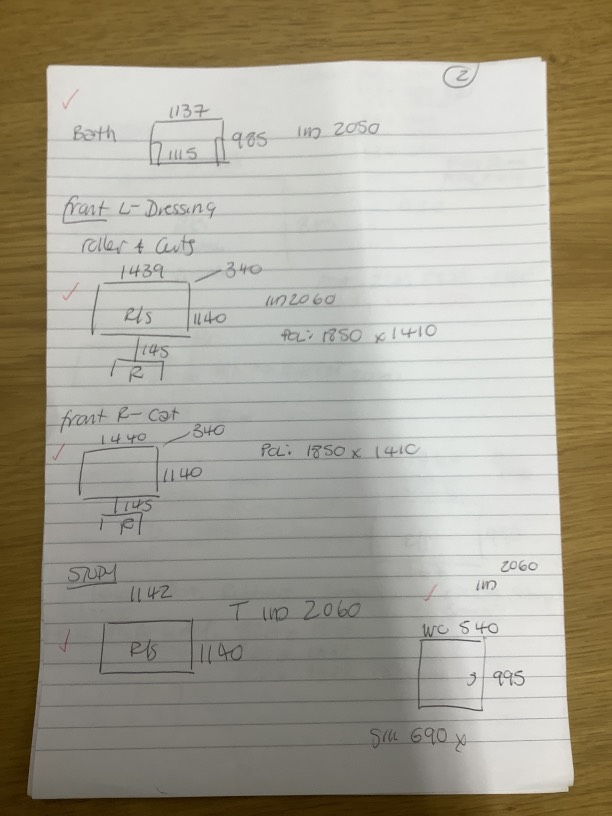 2
1137
Bath 1115 985 2050
front L-Dressing
roller +
1439 340
R/s 1140 2060
1850 x 1410
1145
R
front R-Cat
1440 340
1140 1850 x 1410
1145
R
STUDY
1142
T 2060
R/s 1140
2060
WC 540
995
690 x